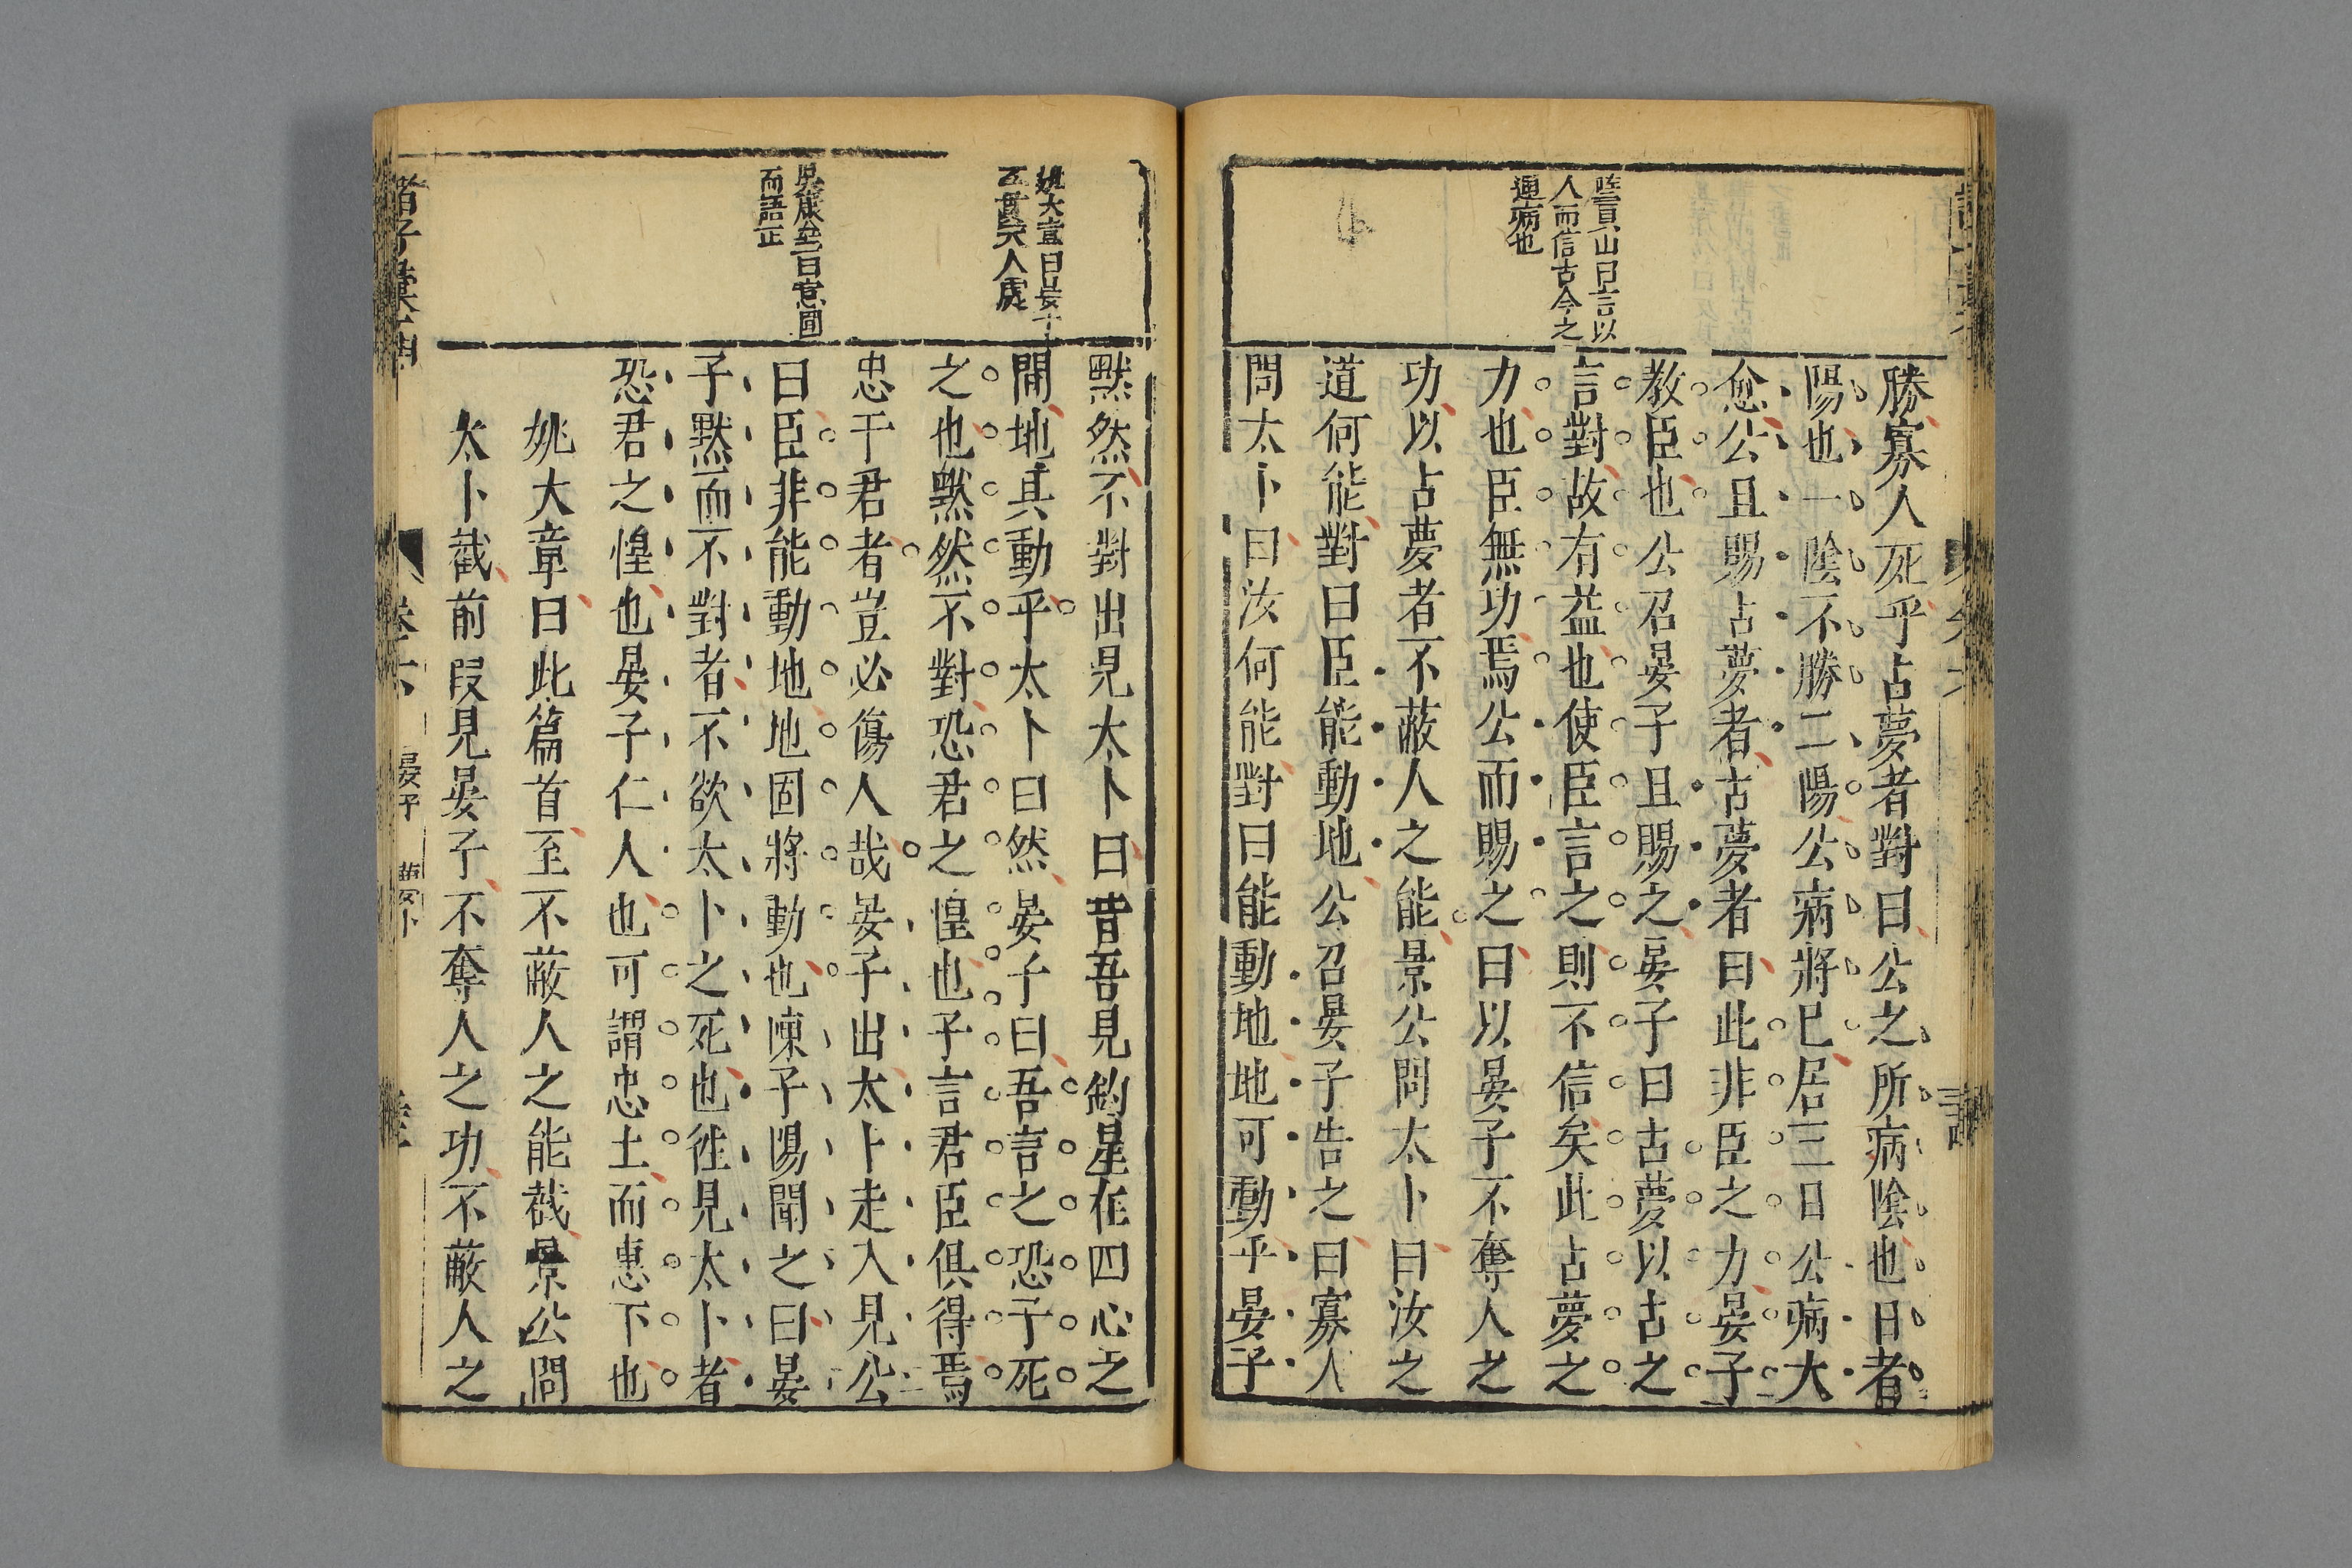 陸貢山曰言以
人而信古今之
通病也
勝寡人死乎占夢者對曰公之所病陰也日者
陽也一陰不勝二陽公病將已居三日公病大
愈公且賜占夢者占夢者曰此非臣之力晏子
教臣也公召晏子且賜之晏子曰占夢以占之
言對故有益也使臣言之則不信矣此占夢之
力也臣無功焉公而賜之曰以晏子不奪人之
功以占夢者不蔽人之能景公問太卜曰汝之
道何能對曰臣能動地公召晏子告之曰寡人
問太卜曰汝何能對曰能動地地可動乎晏子
姚大章曰晏子
互貫哭人處
而語正
默然不對出見太卜曰昔吾見鈎星在四心之
間地其動乎太卜曰然晏子曰吾言之恐子死
之也默然不對恐君之惶也子言君臣俱得焉
忠于君者豈必傷人哉晏子出太卜走入見公
曰臣非能動地地固將動也陳子陽聞之曰晏
子默而不對者不欲太卜之死也徃見太卜者
恐君之惶也晏子仁人也可謂忠上而惠下也
姚大章曰此篇首至不蔽人之能截景公問
太卜截前叚見晏子不奪人之功不蔽人之
諸子彙函
卷六
晏子